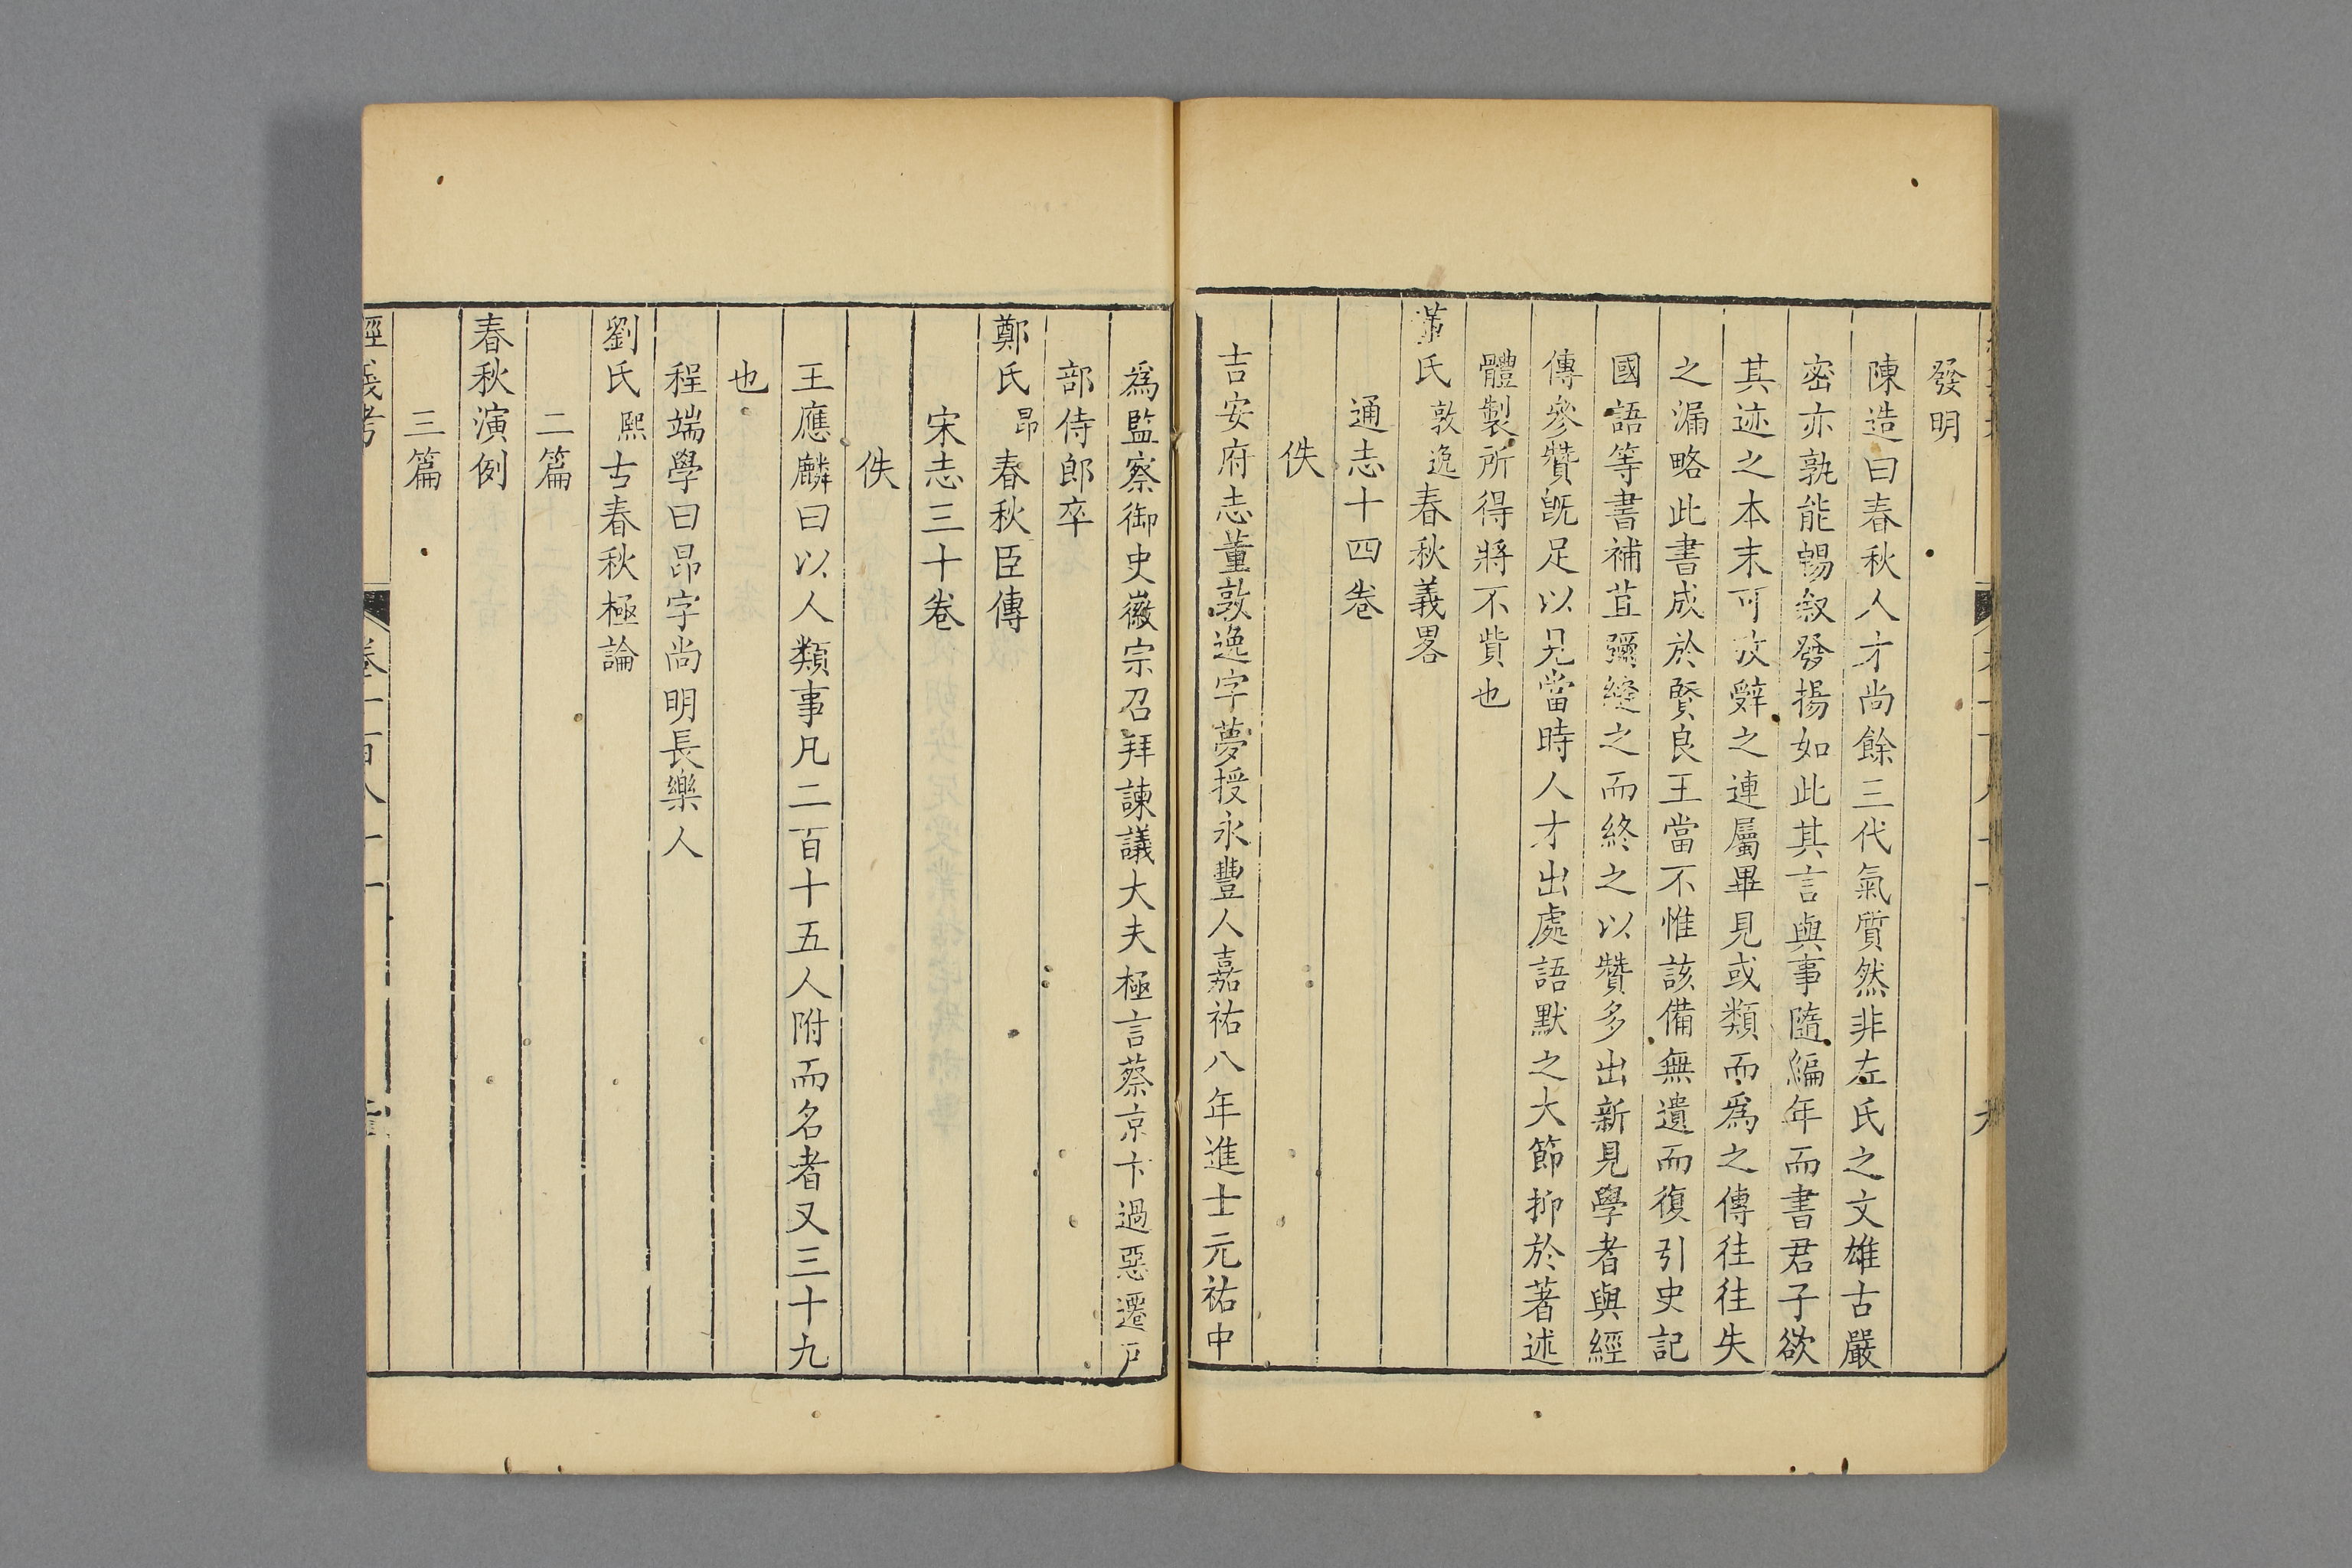 發明
陳造曰春秋人才尚餘三代氣質然非左氏之文雄古嚴
密亦孰能暢叙發揚如此其言與事隨編年而書君子欲
其迹之本末可攷辭之連屬畢見或類而爲之傳往往失
之漏略此書成於賢良王當不惟該備無遺而復引史記
國語等書補苴彌縫之而終之以贊多出新見學者與經
傳參贊旣足以見當時人才出處語默之大節抑於著述
體製所得將不貲也
董氏敦逸春秋義畧
通志十四卷
佚
吉安府志董敦逸字夢授永豐人嘉祐八年進士元祐中
爲監察御史徽宗召拜諫議大夫極言蔡京卞過惡遷戸
部侍郎卒
鄭氏昂春秋臣傳
宋志三十卷
佚
王應麟曰以人類事凡二百十五人附而名者又三十九
也
程端學曰昂字尚明長樂人
劉氏熙古春秋極論
二篇
春秋演例
三篇
經義考